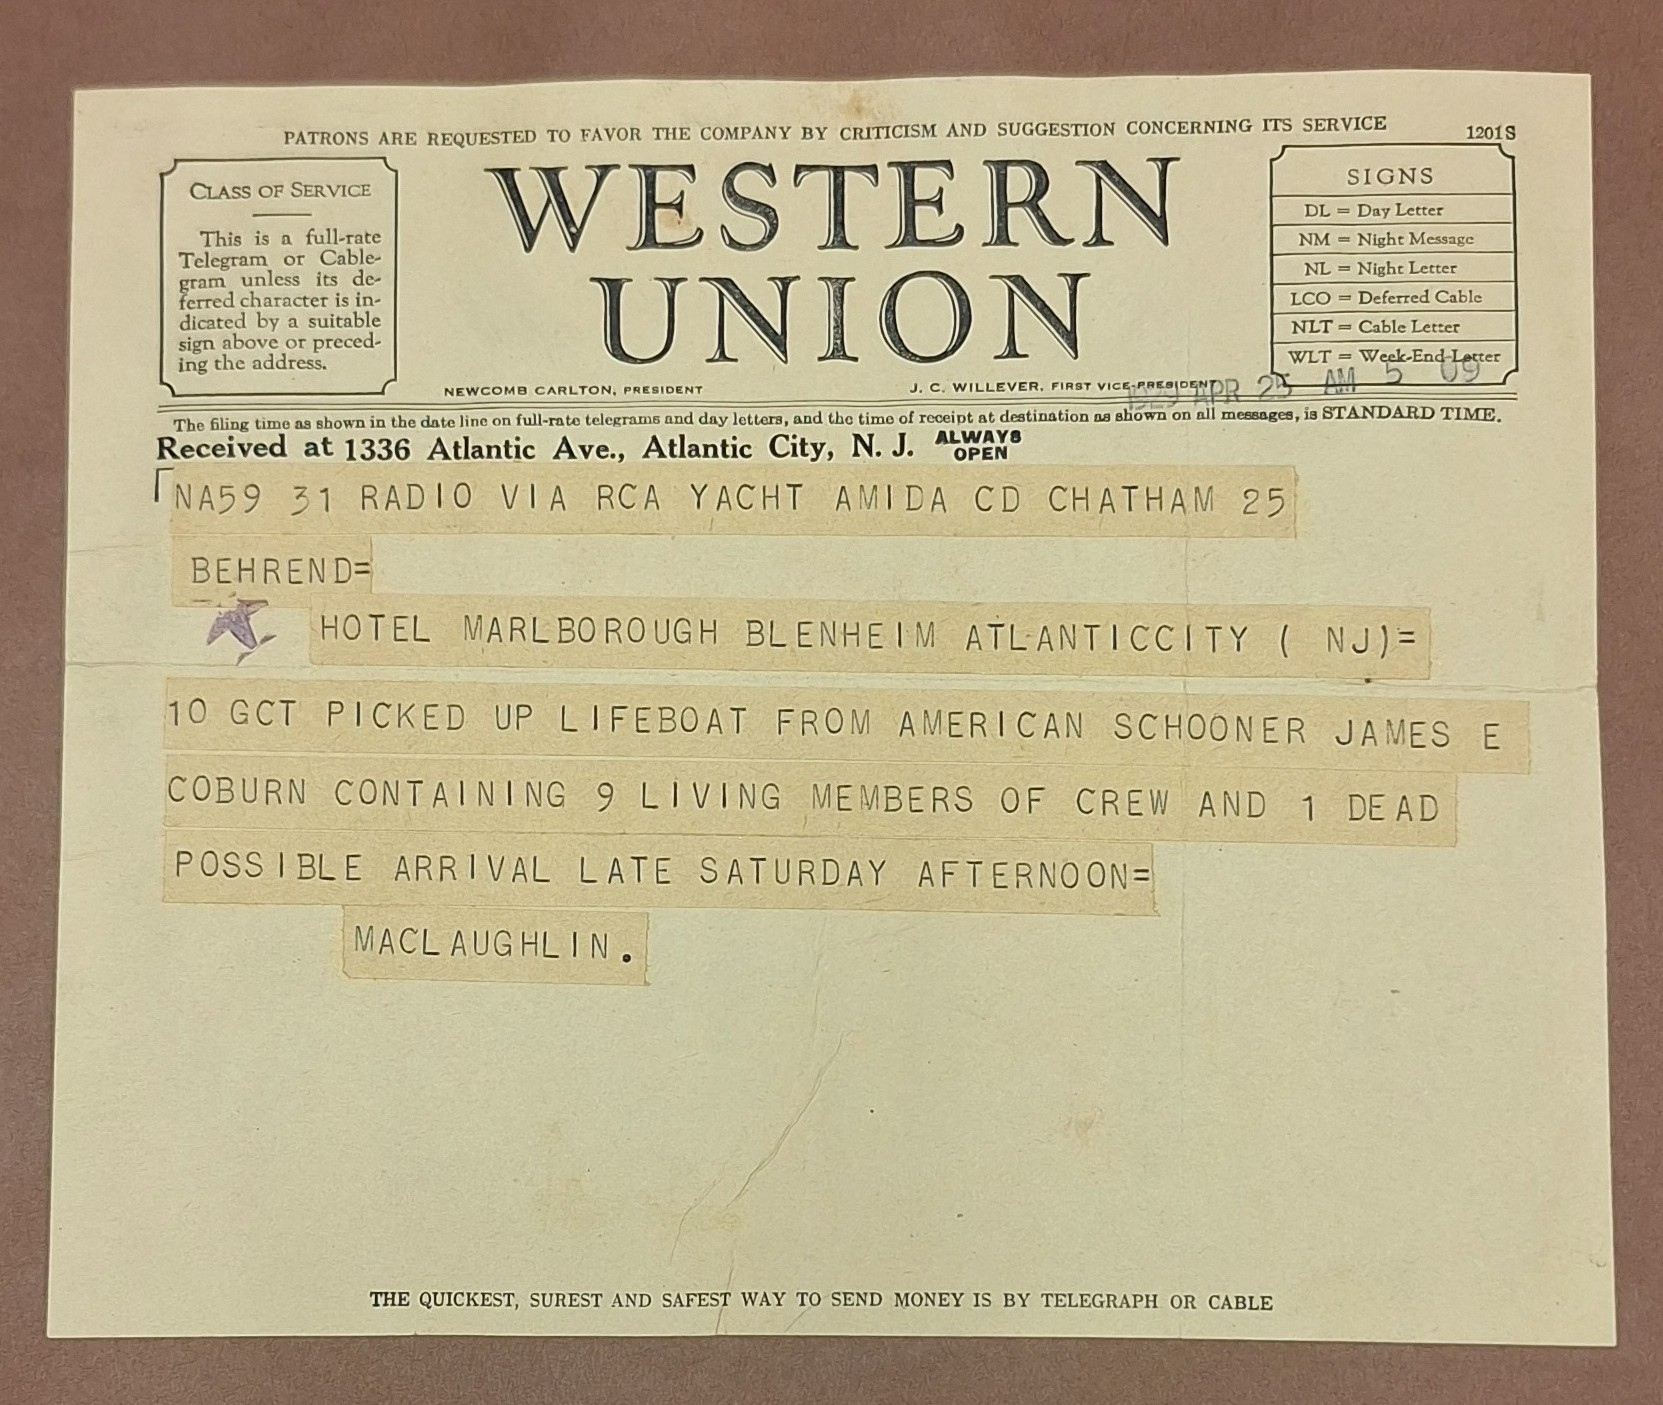 PATRONS ARE REQUESTED TO FAVOR THE COMPANY BY CRITICISM AND SUGGESTION CONCERNING ITS SERVICE
1201S
CLASS OF SERVICE
This is a full-rate
Telegram or Cable-
gram unless its de-
ferred character is in-
dicated by a suitable
sign above or preced-
ing the address.
WESTERN
UNION
NEWCOMB CARLTON, PRESIDENT
J. C. WILLEVER, FIRST VICE-PRESIDENT
SIGNS
DL = Day Letter
NM = Night Message
NL = Night Letter
LCO = Deferred Cable
NLT = Cable Letter
WLT = Week-End Letter
1929 APR 25 AM 5 09
The filing time as shown in the date line on full-rate telegrams and day letters, and the time of receipt at destination as shown on all messages, is STANDARD TIME.
Received at 1336 Atlantic Ave., Atlantic City, N. J. ALWAYS OPEN
NA59 31 RADIO VIA RCA YACHT AMIDA CD CHATHAM 25
BEHREND=
HOTEL MARLBOROUGH BLENHEIM ATLANTICCITY ( NJ)=
10 GCT PICKED UP LIFEBOAT FROM AMERICAN SCHOONER JAMES E
COBURN CONTAINING 9 LIVING MEMBERS OF CREW AND 1 DEAD
POSSIBLE ARRIVAL LATE SATURDAY AFTERNOON=
MACLAUGHLIN.
THE QUICKEST, SUREST AND SAFEST WAY TO SEND MONEY IS BY TELEGRAPH OR CABLE